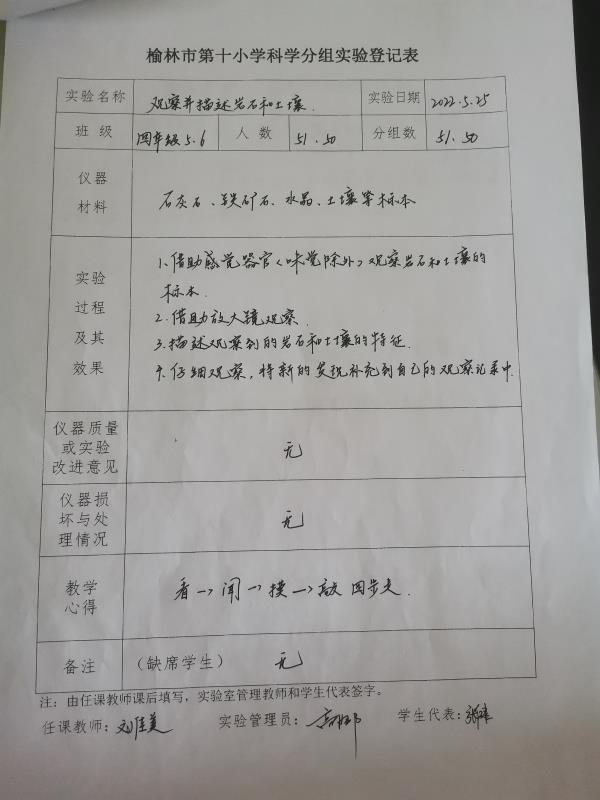 榆林市第十小学科学分组实验登记表
实验名称 观察并描述岩石和土壤. 实验日期 2022.5.25
班 级 四年级5.6 人 数 51.50 分组数 51.50
仪器
材料
石灰石、铁矿石、水晶、土壤等标本
实验
过程
及其
效果
1.借助感觉器官<味觉除外>观察岩石和土壤的
标本.
2.借助放大镜观察.
3.描述观察到的岩石和土壤的特征.
4.仔细观察,将新的发现补充到自己的观察记录中.
仪器质量
或实验
改进意见
无
仪器损
坏与处
理情况
无
教学
心得
看→闻→摸→敲 四步走.
备注 (缺席学生) 无
注:由任课教师课后填写,实验室管理教师和学生代表签字。
任课教师:刘佳美 实验管理员: 学生代表: